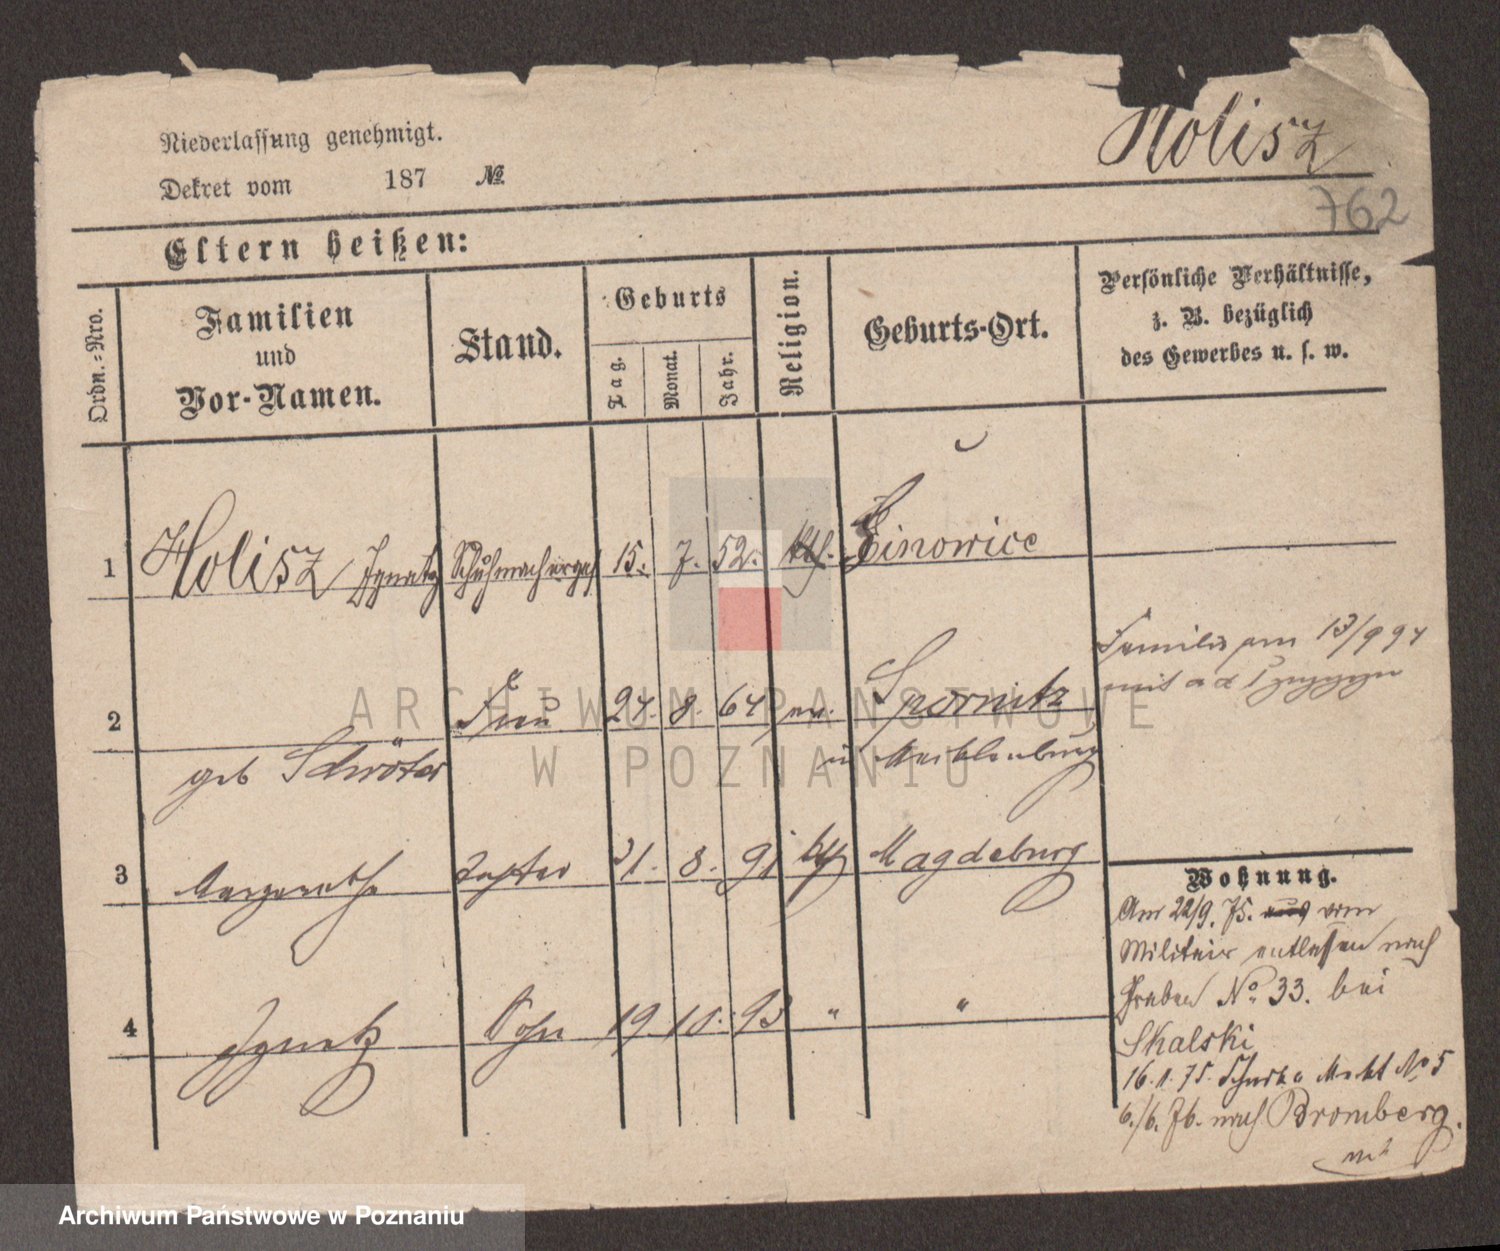 Holisz
Niederlassung genehmigt.
Dekret vom 187 №
762
Eltern heißen:
Ordn.-Nro.
Familien und Vor-Namen.
Stand.
Geburts
Tag. Monat. Jahr.
Religion.
Geburts-Ort.
Persönliche Verhältnisse,
z. B. bezüglich
des Gewerbes u. s. w.
1 Holisz Ignatz Schuhmacherges 15. 7. 52. kth. Zinowice
Familie am 13/9 94
2 Frau 24. 8. 64 ev. Spornitz
geb Schröter in Mecklenburg
3 Margarethe Tochter 21. 8. 91 kth Magdeburg
4 Ignatz Sohn 19. 10. 93 " "
Wohnung.
Am 22/9. 75. vom
Militair entlassen nach
Graben No 33. bei
Skalski
16. 11. 75. Markt No 5
6./6. 76. nach Bromberg.
ARCHIWUM PAŃSTWOWE
W POZNANIU
Archiwum Państwowe w Poznaniu